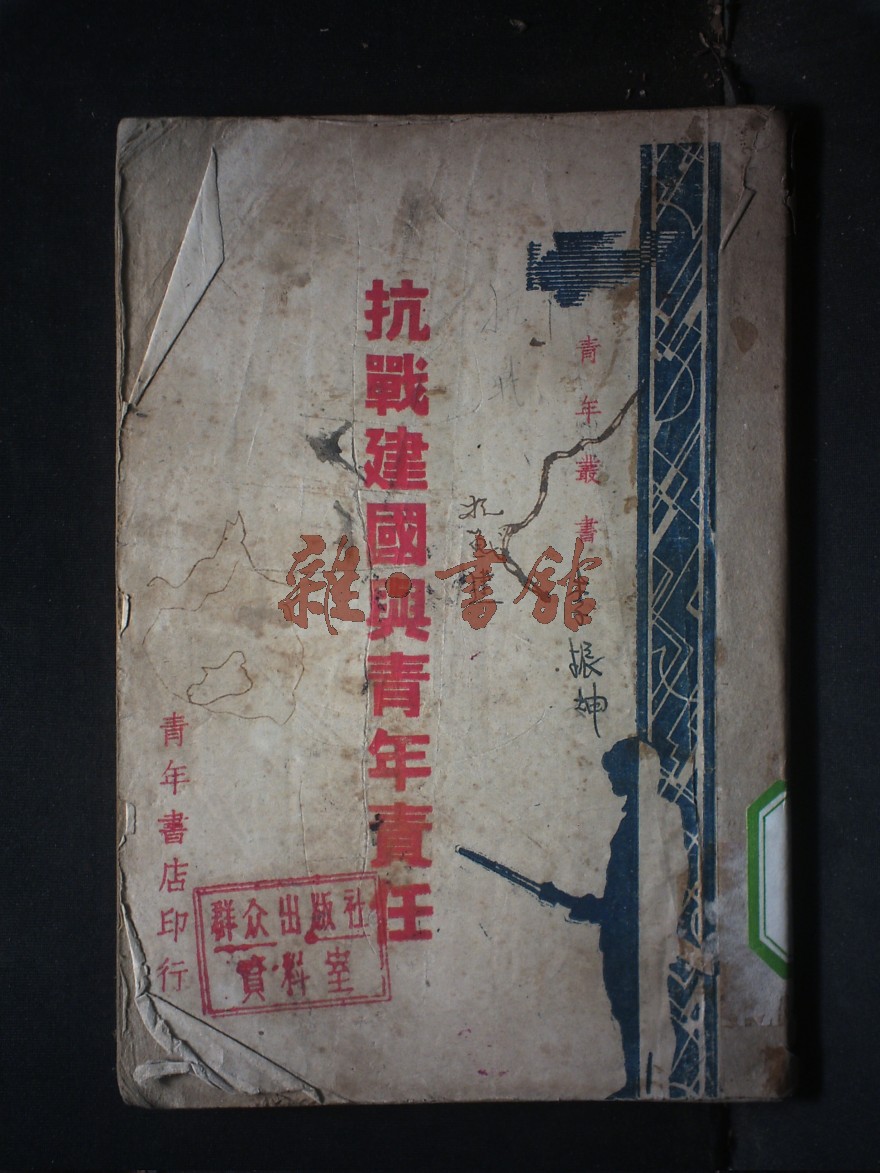 青年叢書
抗戰建國與青年責任
青年書店印行
群众出版社
資料室
振坤
雜·書館